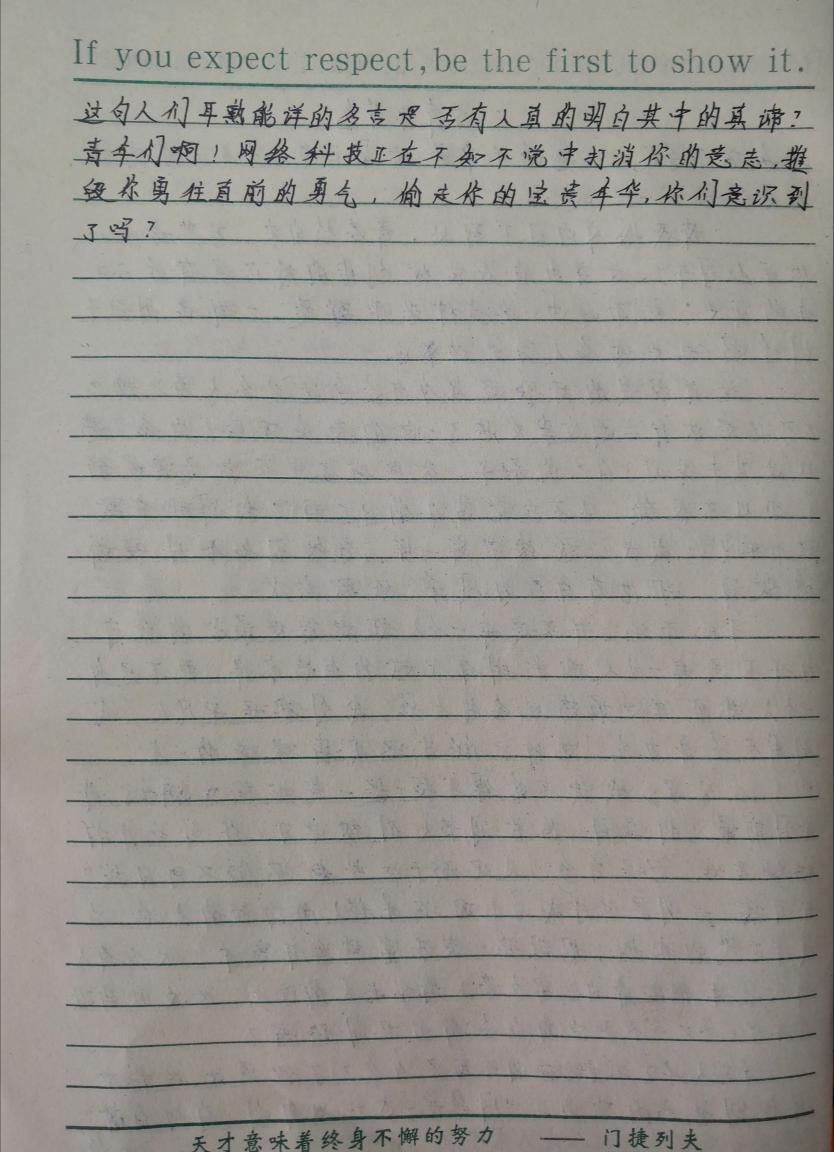 If you expect respect, be the first to show it.
这句人们耳熟能详的名言是否有人真的明白其中的真谛？
青年们啊！网络科技正在不知不觉中打消你的意志，摧
毁你勇往直前的勇气，偷走你的宝贵年华，你们意识到
了吗？
天才意味着终身不懈的努力 —— 门捷列夫